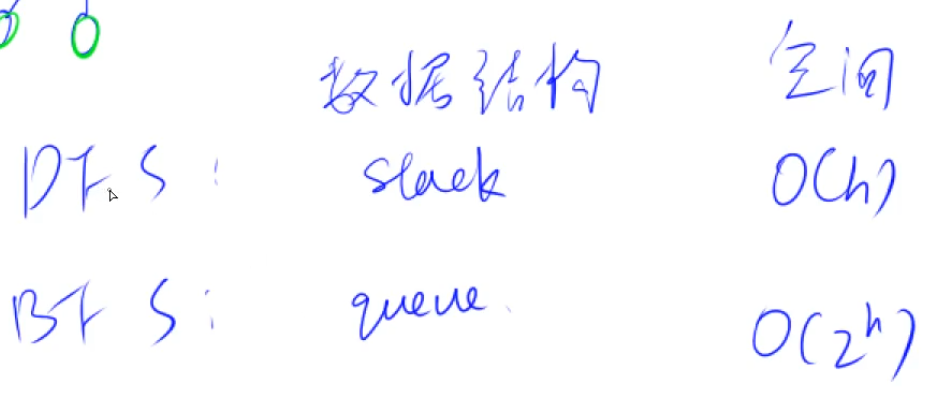 数据结构 空间
DFS: stack O(h)
BFS: queue. O(2^h)